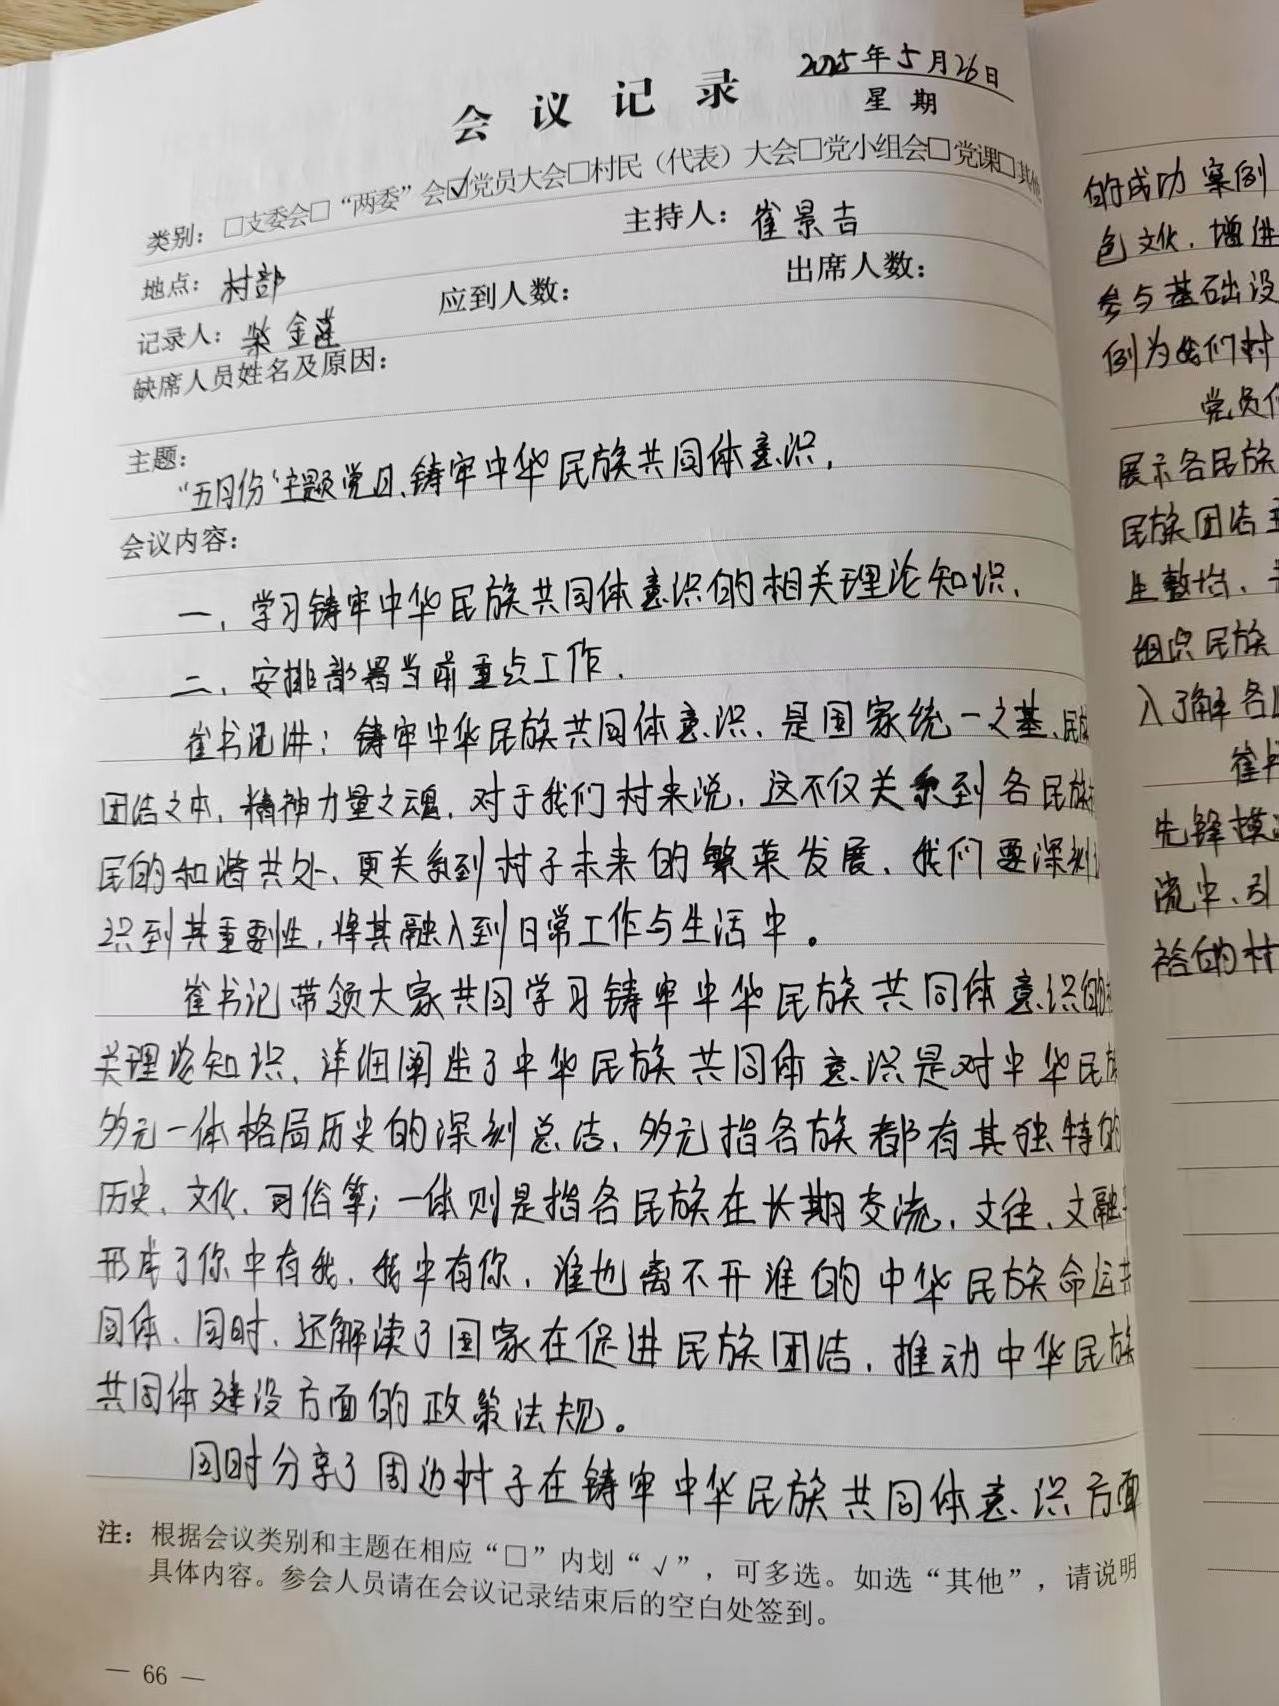 2025年5月26日
会议记录
星期
类别：□支委会□“两委”会☑党员大会□村民（代表）大会□党小组会□党课□其他
地点：村部
主持人：崔景吉
记录人：柴金莲
应到人数：
出席人数：
缺席人员姓名及原因：
主题：
“五月份‘主题党日、铸牢中华民族共同体意识，
会议内容：
一、学习铸牢中华民族共同体意识的相关理论知识，
二、安排部署当前重点工作．
崔书记讲：铸牢中华民族共同体意识、是国家统一之基、民族
团结之本，精神力量之魂，对于我们村来说，这不仅关系到各民族
民的和谐共处、更关系到村子未来的繁荣发展，我们要深刻
识到其重要性，将其融入到日常工作与生活中。
崔书记带领大家共同学习铸牢中华民族共同体意识的
关理论知识、详细阐述了中华民族共同体意识是对中华民族
多元一体格局历史的深刻总结、多元指各族都有其独特的
历史、文化、习俗等；一体则是指各民族在长期交流，交往、交融
形成了你中有我，我中有你，谁也离不开谁的中华民族命运共
同体、同时，还解读了国家在促进民族团结，推动中华民族
共同体建设方面的政策法规。
同时分享了周边村子在铸牢中华民族共同体意识方面
注：根据会议类别和主题在相应“□”内划“√”，可多选。如选“其他”，请说明
具体内容。参会人员请在会议记录结束后的空白处签到。
— 66 —
的成功案例
色文化，增进
参与基础设
例为我们村
党员们
展示各民族
民族团结
生整治、
组织民族
入了解各
崔书
先锋模
流中、引
裕的村